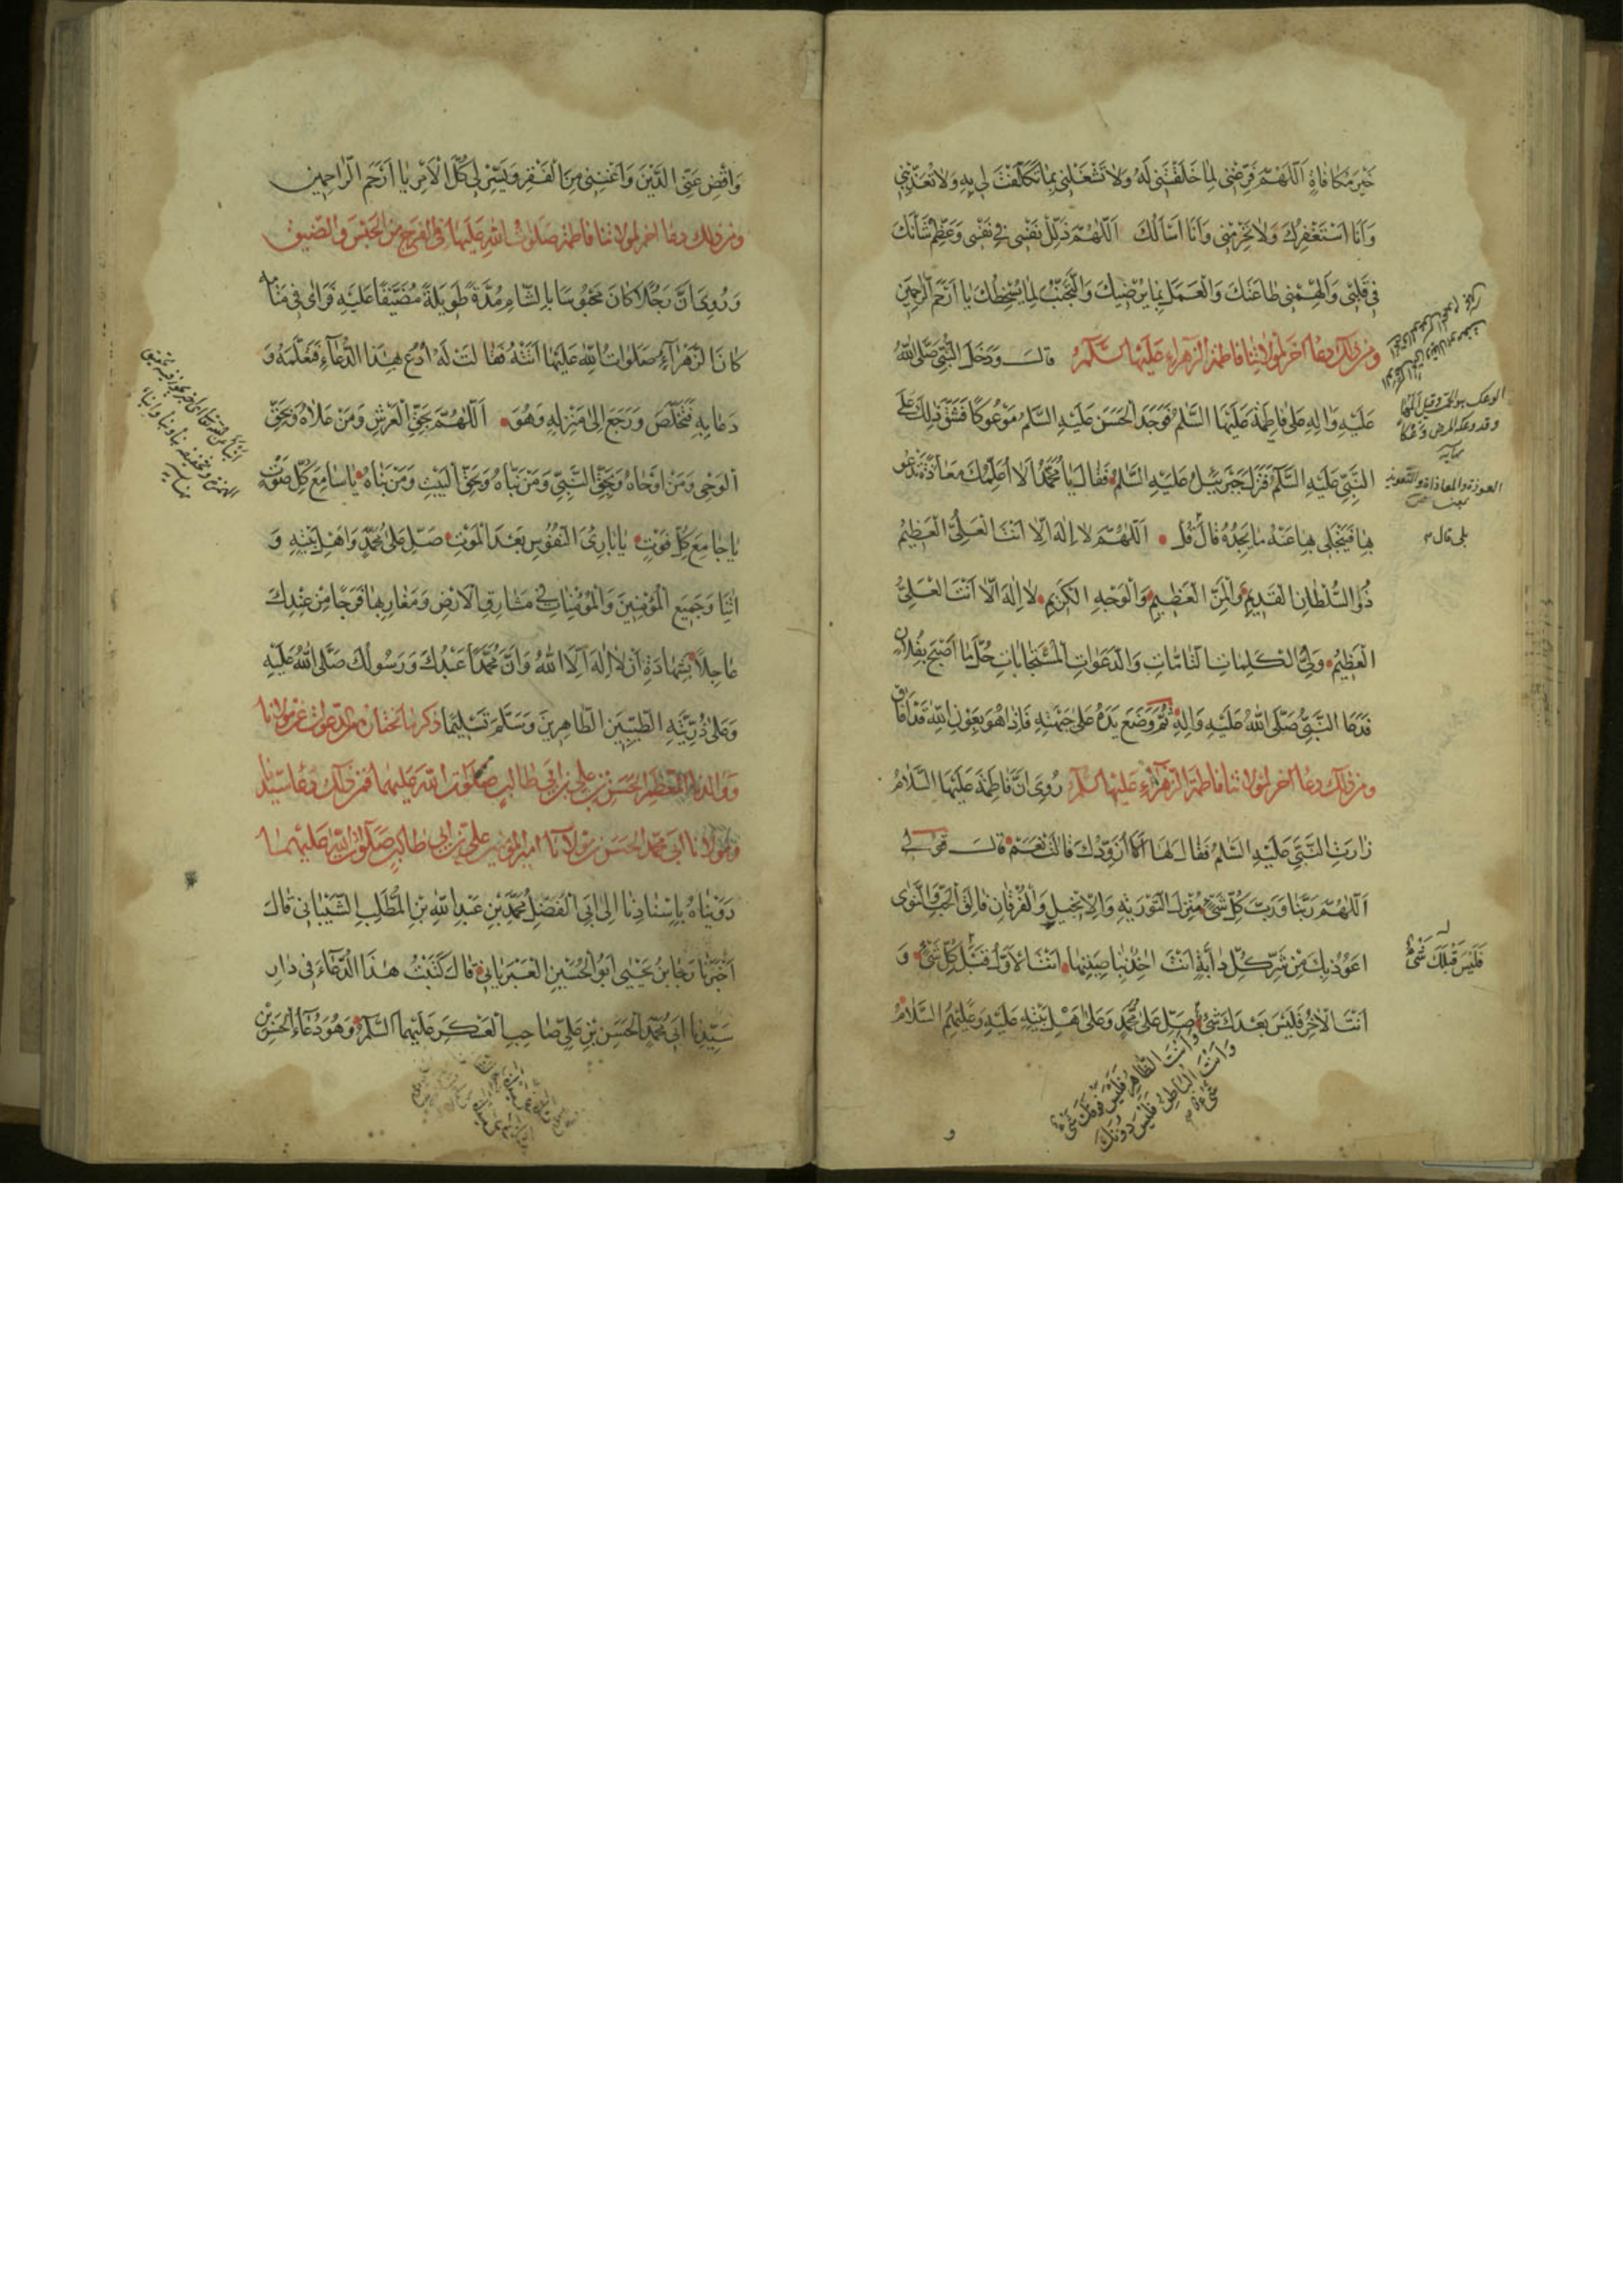 خَيْرَ مُكَافَاةٍ اَللّٰهُمَّ فَرِّغْنِي لِمَا خَلَقْتَنِي لَهُ وَلَا تَشْغَلْنِي بِمَا تَكَلَّفْتَ لِي بِهِ وَلَا تُعَذِّبْنِي
وَاَنَا اَسْتَغْفِرُكَ وَلَا تَحْرِمْنِي وَاَنَا اَسْاَلُكَ اَللّٰهُمَّ ذَلِّلْ نَفْسِي فِي نَفْسِي وَعَظِّمْ شَأْنَكَ
فِي قَلْبِي وَاَلْهِمْنِي طَاعَتَكَ وَالْعَمَلَ بِمَا يُرْضِيكَ وَالتَّجَنُّبَ لِمَا يُسْخِطُكَ يَا اَرْحَمَ الرَّاحِمِينَ
ومن ذلك دعاء اخر لمولاتنا فاطمة الزهراء عليها السلام قال ودَخَلَ النَّبِيُّ صَلَّى اللّٰهُ
عَلَيْهِ وَاٰلِهِ عَلٰى فَاطِمَةَ عَلَيْهَا السَّلٰمُ فَوَجَدَ الْحَسَنَ عَلَيْهِ السَّلٰمُ مَوْعُوكًا فَشَقَّ ذٰلِكَ عَلَى
النَّبِيِّ عَلَيْهِ السَّلٰمُ فَنَزَلَ جَبْرَئِيلُ عَلَيْهِ السَّلٰمُ فَقَالَ يَا مُحَمَّدُ اَلَا اُعَلِّمُكَ مَعَاذَةً تَدْعُو
بِهَا فَيَنْجَلِي بِهَا عَنْهُ مَا يَجِدُهُ قَالَ قُلْ اَللّٰهُمَّ لَا اِلٰهَ اِلَّا اَنْتَ الْعَلِيُّ الْعَظِيمُ
ذُو السُّلْطَانِ الْقَدِيمِ وَالْمَنِّ الْعَظِيمِ وَالْوَجْهِ الْكَرِيمِ لَا اِلٰهَ اِلَّا اَنْتَ الْعَلِيُّ
الْعَظِيمُ وَلِيُّ الْكَلِمَاتِ التَّامَّاتِ وَالدَّعَوَاتِ الْمُسْتَجَابَاتِ حُلَّ مَا اَصْبَحَ بِفُلَانٍ
فَدَعَا النَّبِيُّ صَلَّى اللّٰهُ عَلَيْهِ وَاٰلِهِ ثُمَّ وَضَعَ يَدَهُ عَلٰى جَبْهَتِهِ فَاِذَا هُوَ بِعَوْنِ اللّٰهِ قَدْ اَفَاقَ
ومن ذلك دعاء اخر لمولاتنا فاطمة الزهراء عليها السلام رُوِيَ اَنَّ فَاطِمَةَ عَلَيْهَا السَّلَامُ
زَارَتِ النَّبِيَّ عَلَيْهِ السَّلٰمُ فَقَالَ لَهَا اَلَا اُزَوِّدُكِ قَالَتْ نَعَمْ قَالَ قُولِي
اَللّٰهُمَّ رَبَّنَا وَرَبَّ كُلِّ شَيْءٍ مُنْزِلَ التَّوْرٰيةِ وَالْاِنْجِيلِ وَالْفُرْقَانِ فَالِقَ الْحَبِّ وَالنَّوَى
اَعُوذُ بِكَ مِنْ شَرِّ كُلِّ دَابَّةٍ اَنْتَ اٰخِذٌ بِنَاصِيَتِهَا اَنْتَ الْاَوَّلُ قَبْلَ كُلِّ شَيْءٍ وَ
اَنْتَ الْاٰخِرُ فَلَيْسَ بَعْدَكَ شَيْءٌ صَلِّ عَلٰى مُحَمَّدٍ وَعَلٰى اَهْلِ بَيْتِهِ عَلَيْهِ وَعَلَيْهِمُ السَّلَامُ
وَاَنْتَ الظَّاهِرُ فَلَيْسَ فَوْقَكَ شَيْءٌ
وَاَنْتَ الْبَاطِنُ فَلَيْسَ دُونَكَ
شَيْءٌ
و
الوعك هو الحمى وقيل المها
وقد وعكه المرض وعكا
نهايه
العوذة والمعاذة والتعويذ
بمعنى
بلى قال
فَلَيْسَ قَبْلَكَ شَيْءٌ
وَاقْضِ عَنِّي الدَّيْنَ وَاَغْنِنِي مِنَ الْفَقْرِ وَيَسِّرْ لِي كُلَّ الْاَمْرِ يَا اَرْحَمَ الرَّاحِمِينَ
ومن ذلك دعاء اخر لمولاتنا فاطمة صلوات الله عليها في الفرج من الحبس والضيق
وَرُوِيَ اَنَّ رَجُلًا كَانَ مَحْبُوسًا بِالشَّامِ مُدَّةً طَوِيلَةً مُضَيَّقًا عَلَيْهِ فَرَاٰى فِي مَنَامِهِ
كَاَنَّ الزَّهْرَاءَ صَلَوَاتُ اللّٰهِ عَلَيْهَا اَتَتْهُ فَقَالَتْ لَهُ اُدْعُ بِهٰذَا الدُّعَاءِ فَتَعَلَّمَهُ وَ
دَعَا بِهِ فَتَخَلَّصَ وَرَجَعَ اِلٰى مَنْزِلِهِ وَهُوَ اَللّٰهُمَّ بِحَقِّ الْعَرْشِ وَمَنْ عَلَاهُ وَبِحَقِّ
الْوَحْيِ وَمَنْ اَوْحَاهُ وَبِحَقِّ النَّبِيِّ وَمَنْ نَبَّاَهُ وَبِحَقِّ الْبَيْتِ وَمَنْ بَنَاهُ يَا سَامِعَ كُلِّ صَوْتٍ
يَا جَامِعَ كُلِّ فَوْتٍ يَا بَارِئَ النُّفُوسِ بَعْدَ الْمَوْتِ صَلِّ عَلٰى مُحَمَّدٍ وَاَهْلِ بَيْتِهِ وَ
اٰتِنَا وَجَمِيعَ الْمُؤْمِنِينَ وَالْمُؤْمِنَاتِ فِي مَشَارِقِ الْاَرْضِ وَمَغَارِبِهَا فَرَجًا مِنْ عِنْدِكَ
عَاجِلًا بِشَهَادَةِ اَنْ لَا اِلٰهَ اِلَّا اللّٰهُ وَاَنَّ مُحَمَّدًا عَبْدُكَ وَرَسُولُكَ صَلَّى اللّٰهُ عَلَيْهِ
وَعَلٰى ذُرِّيَّتِهِ الطَّيِّبِينَ الطَّاهِرِينَ وَسَلَّمَ تَسْلِيمًا ذكر ما نختاره من الدعوات عن مولانا
ووالدنا المعظم الحسن بن علي بن ابي طالب صلوات الله عليهما فمن ذلك دعاء سيدنا
ومولانا ابي محمد الحسن بن مولانا امير المؤمنين علي بن ابي طالب صلوات الله عليهما
رَوَيْنَاهُ بِاِسْنَادِنَا اِلٰى اَبِي الْمُفَضَّلِ مُحَمَّدِ بْنِ عَبْدِ اللّٰهِ بْنِ الْمُطَّلِبِ الشَّيْبَانِي قَالَ
اَخْبَرَنَا رَجَا بْنُ يَحْيٰى اَبُو الْحُسَيْنِ الْعَبَرْتَائِي قَالَ كَتَبْتُ هٰذَا الدُّعَاءَ فِي دَارِ
سَيِّدِنَا اَبِي مُحَمَّدٍ الْحَسَنِ بْنِ عَلِيٍّ صَاحِبِ الْعَسْكَرِ عَلَيْهِمَا السَّلٰمُ وَهُوَ دُعَاءُ الْحَسَنِ بْنِ